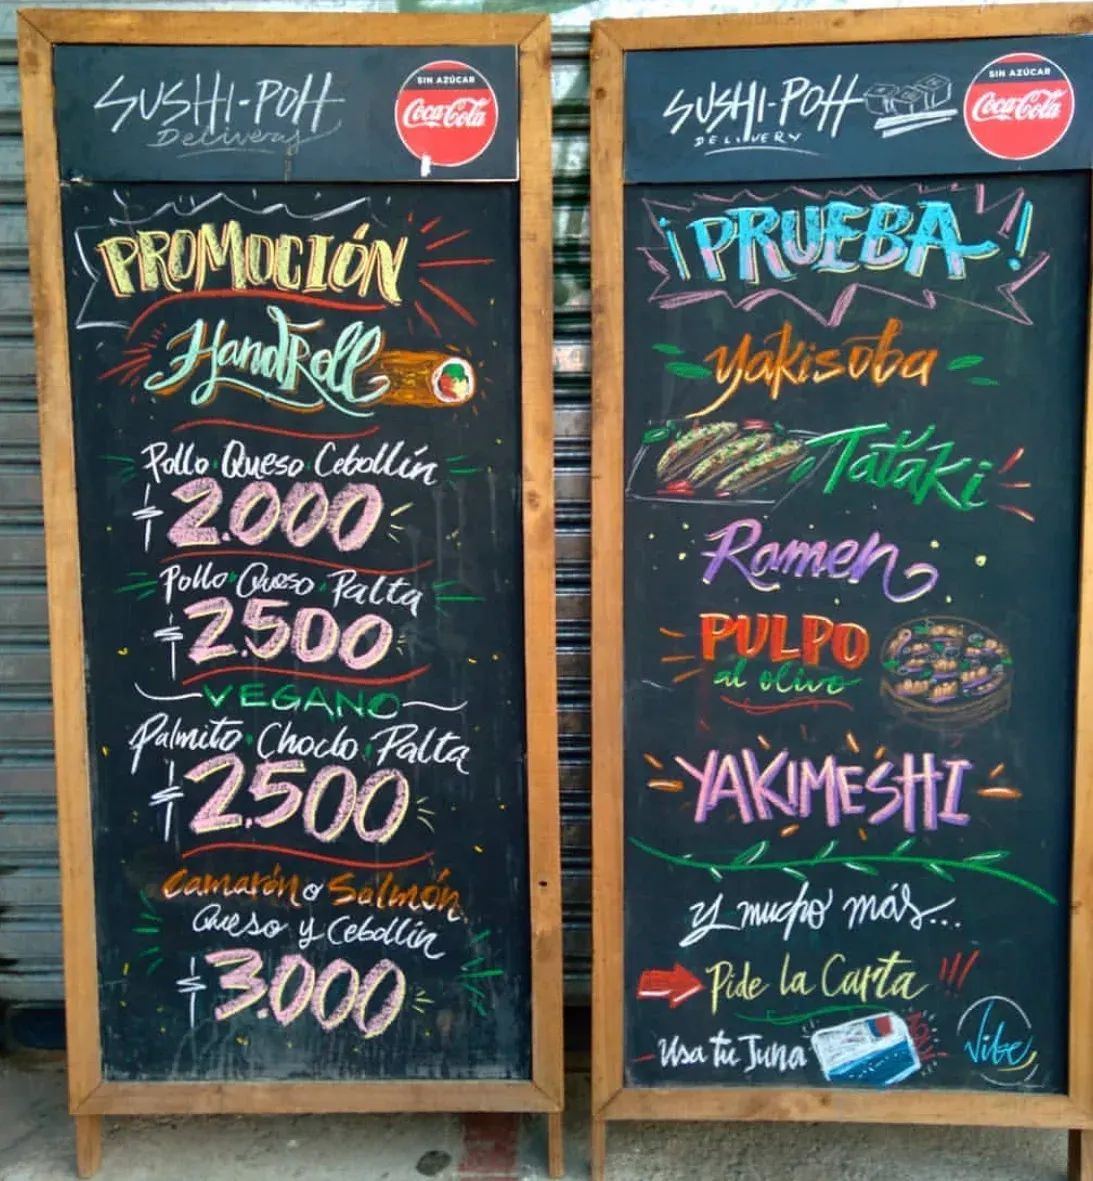 SUSHI-POH
Deliverys
SIN AZÚCAR
Coca-Cola
PROMOCIÓN
HandRoll
Pollo · Queso · Cebollín
$ 2.000
Pollo · Queso · Palta
$ 2.500
VEGANO
Palmito · Choclo · Palta
$ 2.500
Camarón o Salmón
Queso y Cebollín
$ 3.000
SUSHI-POH
DELIVERY
SIN AZÚCAR
Coca-Cola
¡PRUEBA!
Yakisoba
Tataki
Ramen
PULPO
al olivo
YAKIMESHI
y mucho más...
Pide la Carta
Usa tu Juna
Vibe